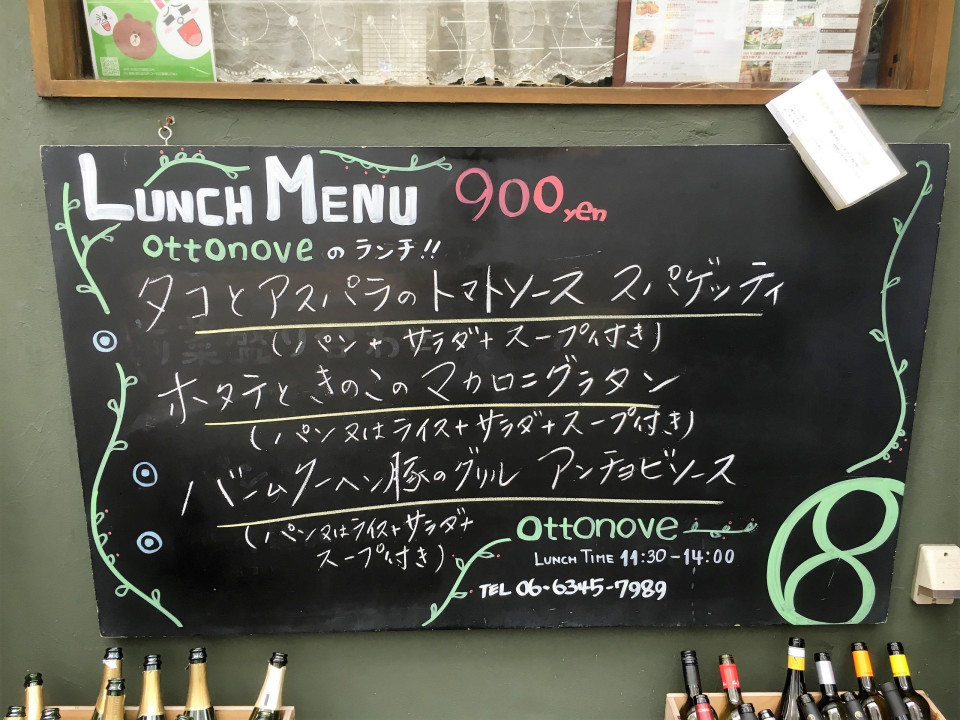 LUNCH MENU 900yen
ottonove のランチ!!
タコとアスパラのトマトソース スパゲッティ
(パン + サラダ+ スープ付き)
ホタテときのこのマカロニグラタン
(パン又はライス+サラダ+スープ付き)
バームクーヘン豚のグリル アンチョビソース
(パン又はライス+サラダ+
スープ付き)
ottonove
LUNCH TIME 11:30-14:00
TEL 06-6345-7989
8